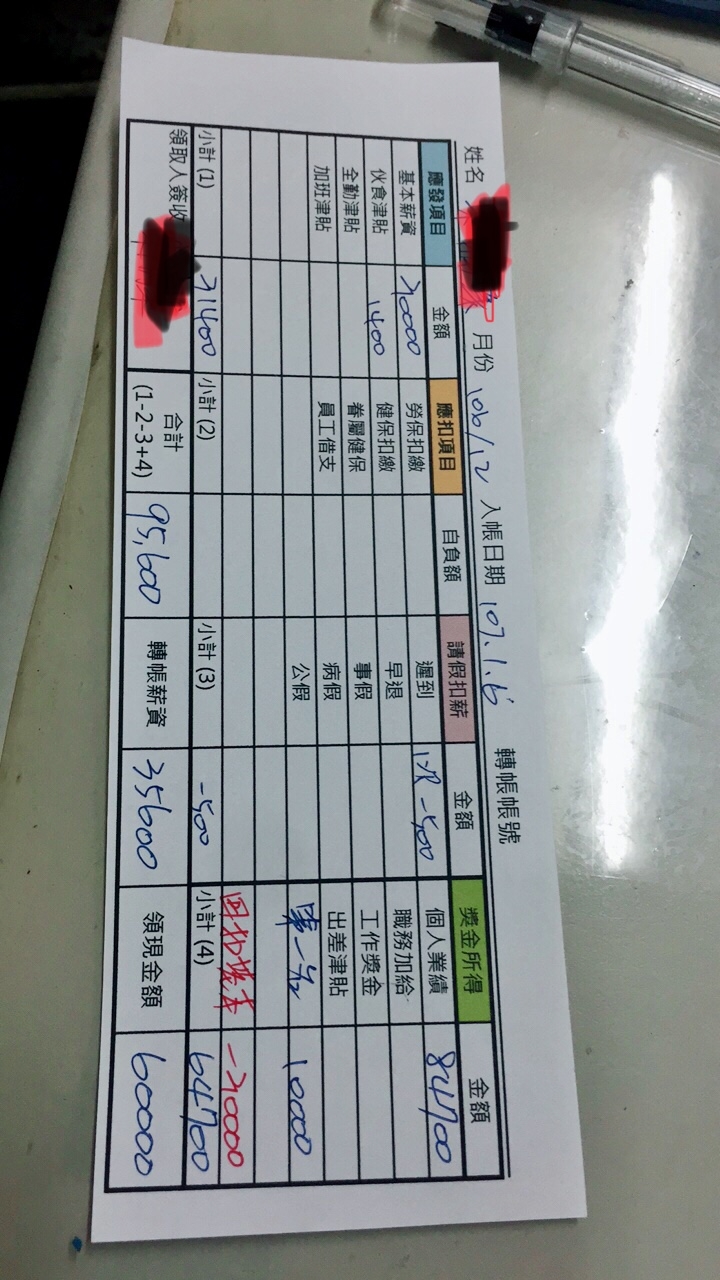 姓名 月份 106/12 入帳日期 107.1.6 轉帳帳號
應發項目 金額 應扣項目 自負額 請假扣薪 金額 獎金所得 金額
基本薪資 20000 勞保扣繳 遲到 1次 -500 個人業績 84700
伙食津貼 1400 健保扣繳 早退 職務加給
全勤津貼 眷屬健保 事假 工作獎金
加班津貼 員工借支 病假 出差津貼
公假 第一名 10000
回扣底薪 -20000
小計 (1) 21400 小計 (2) 小計 (3) -500 小計 (4) 64700
領取人簽收 合計 (1-2-3+4) 95,600 轉帳薪資 35600 領現金額 60000